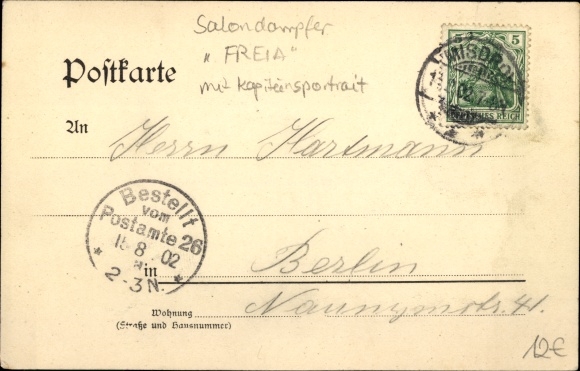 Salondampfer
„FREIA“
mit Kapitänsportrait
Postkarte
5
MISDROY
02
REICH
An
Herrn Hartmann
Bestellt
vom
Postamte 26
8 02
2-3N.
in
Berlin
Wohnung
(Straße und Hausnummer)
Naunynstr. 41.
12€